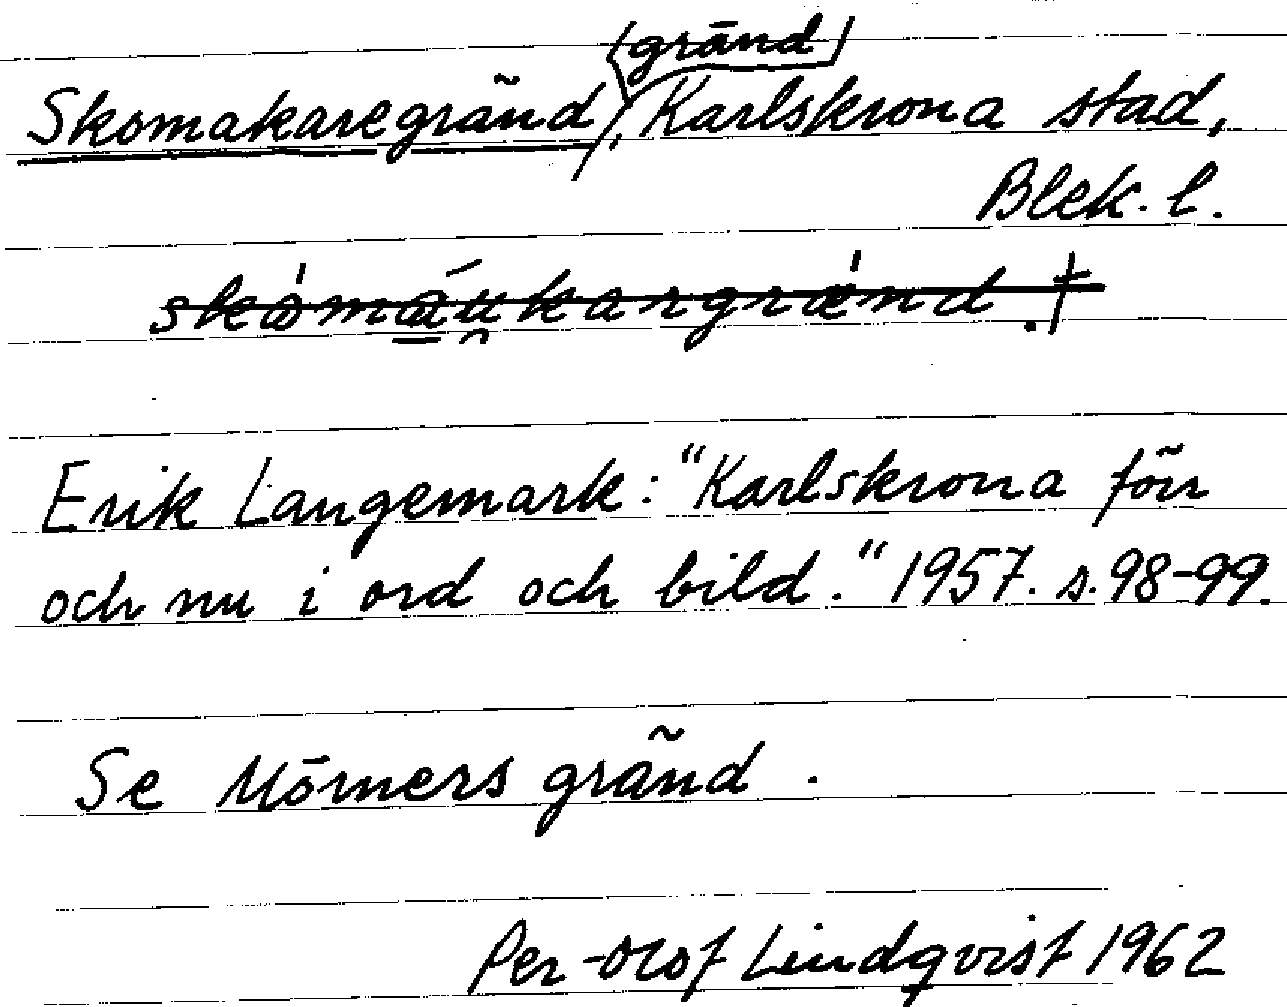 (gränd)
Skomakaregränd, Karlskrona stad,
Blek. l.
Erik Langemark: "Karlskrona förr
och nu i ord och bild." 1957. s. 98-99.
Se Mörners gränd.
Per-Olof Lindqvist 1962